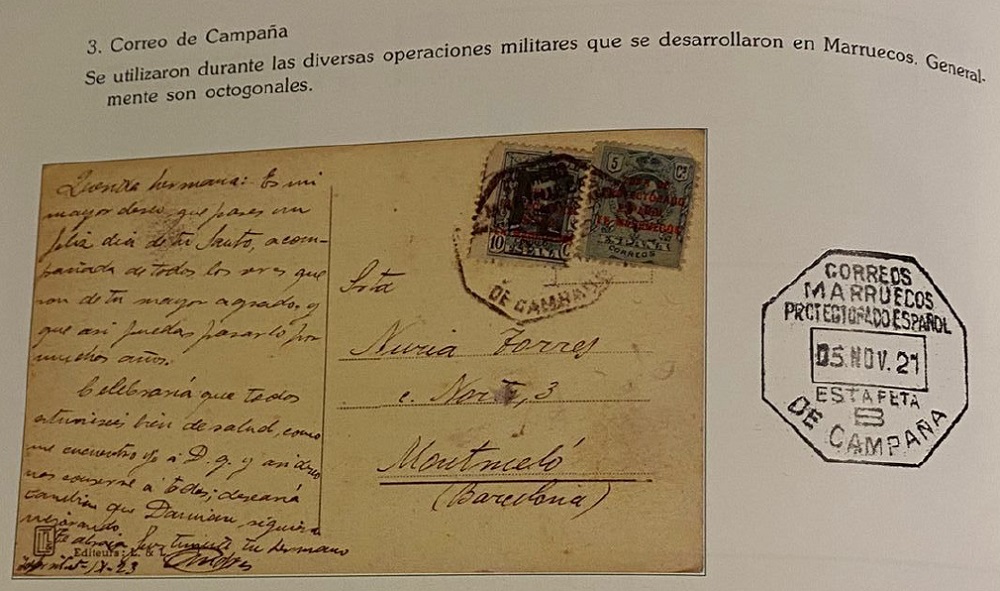 3. Correo de Campaña
Se utilizaron durante las diversas operaciones militares que se desarrollaron en Marruecos. General-
mente son octogonales.
Querida hermana: Es mi
mayor deseo que pases un
feliz dia de tu Santo, acom-
pañada de todos los seres que
son de tu mayor agrado, y
que asi puedas pasarlo por
muchos años.
Celebraria que todos
bien de salud, como
me encuentro yo á D. g. y asi
nos conserve á todos; desearia
tambien que Damian, siguiera
mejorando.
te abraza fuertemente tu hermano
Andres
IX-23
Editeurs: L. &
10
5 Cs
PROTECTORADO
ESPAÑOL
EN MARRUECOS
CORREOS
DE CAMPAÑA
Srta
Nuria Torres
c. Norte, 3
Montmeló
(Barcelona)
CORREOS
MARRUECOS
PROTECTORADO ESPAÑOL
05. NOV. 21
ESTAFETA
DE CAMPAÑA